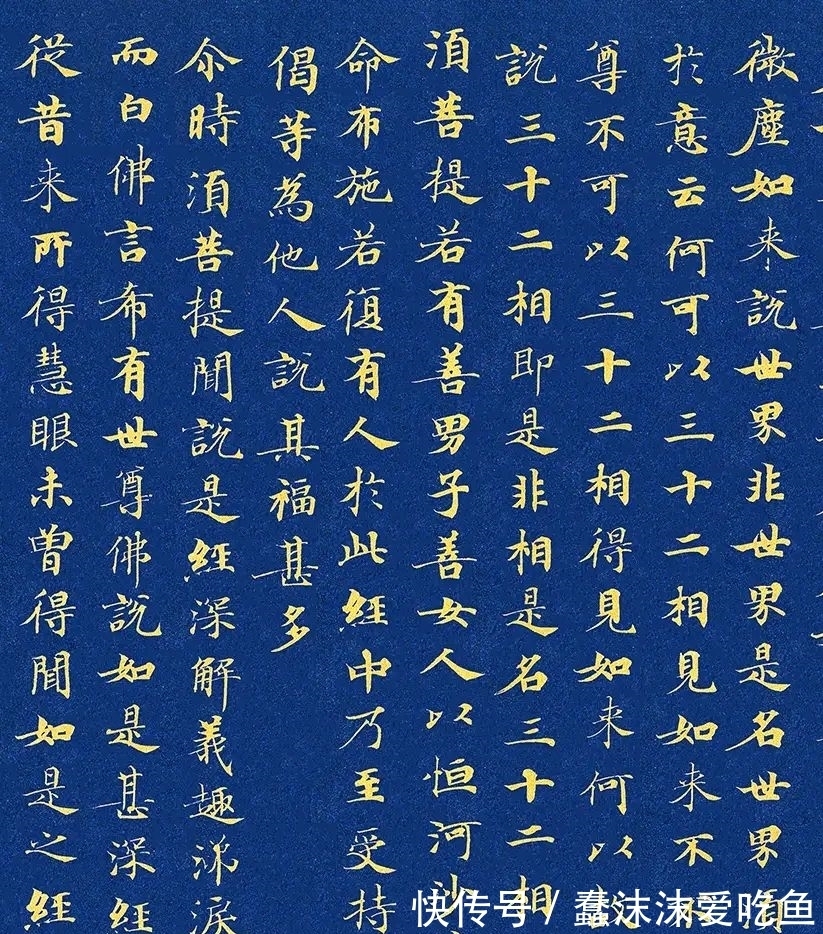 微塵如来說世界非世界是名世界須
於意云何可以三十二相見如来不不
尊不可以三十二相得見如来何以故
說三十二相即是非相是名三十二相
須菩提若有善男子善女人以恒河沙
命布施若復有人於此經中乃至受持
偈等為他人說其福甚多
尒時須菩提聞說是經深解義趣涕淚
而白佛言希有世尊佛說如是甚深經
從昔来所得慧眼未曽得聞如是之經
快传号 / 蠢沫沫爱吃鱼